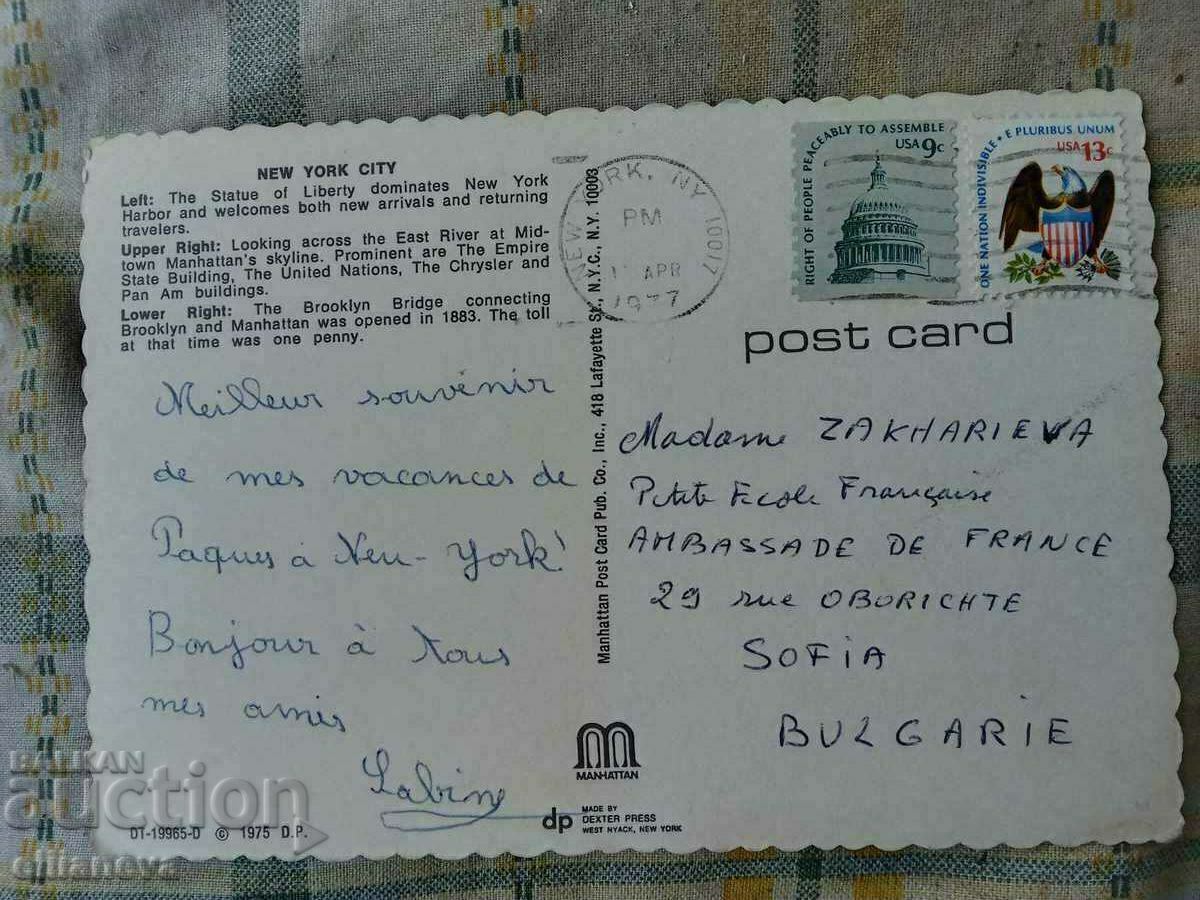 NEW YORK CITY
Left: The Statue of Liberty dominates New York
Harbor and welcomes both new arrivals and returning
travelers.
Upper Right: Looking across the East River at Mid-
town Manhattan's skyline. Prominent are The Empire
State Building, The United Nations, The Chrysler and
Pan Am buildings.
Lower Right: The Brooklyn Bridge connecting
Brooklyn and Manhattan was opened in 1883. The toll
at that time was one penny.
Meilleur souvenir
de mes vacances de
Paques à New-York!
Bonjour à tous
mes amis
Sabine
DT-19965-D © 1975 D.P.
Manhattan Post Card Pub. Co., Inc., 418 Lafayette St., N.Y.C., N.Y. 10003
MANHATTAN
dp
MADE BY
DEXTER PRESS
WEST NYACK, NEW YORK
NEW YORK, NY 10017
PM
APR
1977
RIGHT OF PEOPLE PEACEABLY TO ASSEMBLE
USA 9c
ONE NATION INDIVISIBLE • E PLURIBUS UNUM
USA 13c
post card
Madame ZAKHARIEVA
Petite Ecole Française
AMBASSADE DE FRANCE
29 rue OBORICHTE
SOFIA
BULGARIE
BALKAN
auction
elifaneva